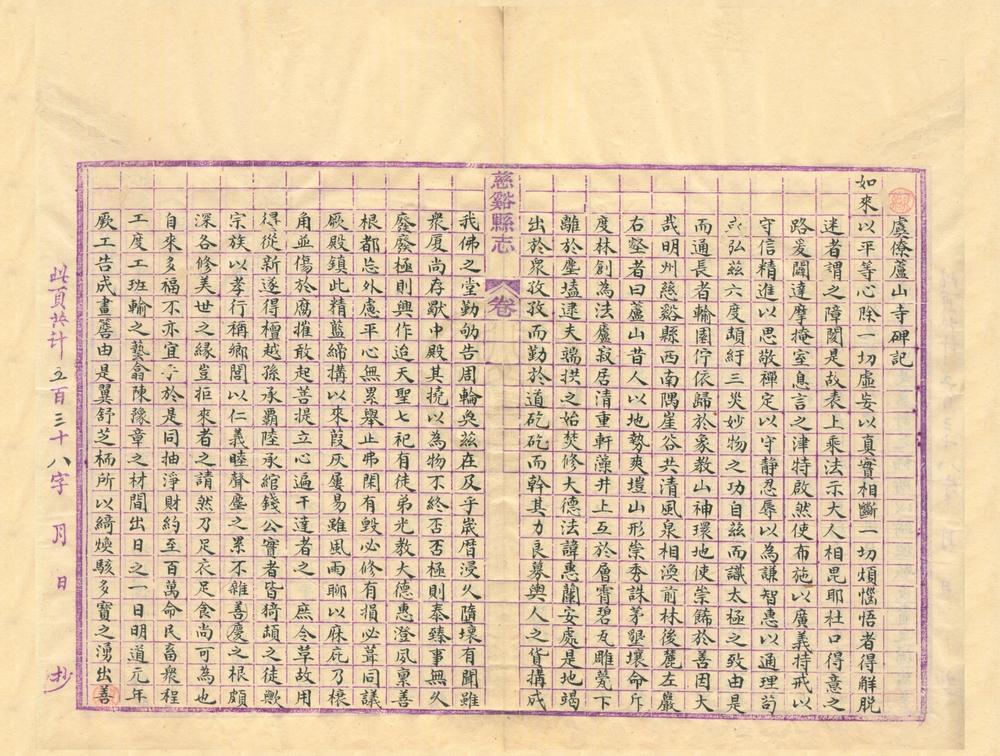 虞僚蘆山寺碑記
如來以平等心除一切虛妄以真實相斷一切煩惱悟者得解脫
迷者謂之障閡是故表上乘法示大人相毘耶杜口得意之
路爰闢達摩掩室息言之津特啟然使布施以廣義持戒以
守信精進以思敬禪定以守静忍辱以為謙智惠以通理苟
弘茲六度頡紆三炎妙物之功自茲而識太極之致由是
而通長者輸園佇依歸於象教山神環地使崇餙於善因大
哉明州慈谿縣西南隅崖谷共清風泉相渙前林後麓左巖
右壑者曰蘆山昔人以地勢爽塏山形崇秀誅茅墾壤命斤
度林創為法廬寂居清重軒藻井上互於層霄碧瓦雕甍下
離於塵壒逮夫端拱之始焚修大德法諱惠蘭安處是地竭
出於衆孜孜而勤於道矻矻而幹其力良募輿人之貨搆成
慈谿縣志 卷
我佛之堂勤劬告周輪奐茲在及乎歲暦浸久隋壞有闕雖
衆厦尚存歎中殿其撓以為物不終否否極則泰臻事無久
廢廢極則興作迨天聖七祀有徒弟光教大德惠澄夙稟善
根都忘外慮平心無累舉止弗閑有毀必修有損必葺同議
厥殿鎮此精藍締構以來葭灰屢易雖風雨聊以庥庇乃榱
角並傷於腐摧敢起菩提立心遍干達者之 庶令草故用
得從新遂得檀越孫承覇陸承綰錢公實者皆猗頡之徒歟
宗族以孝行稱鄉閭以仁義睦聲塵之累不雜善慶之根頗
深各修美世之緣豈拒來者之請然乃足衣足食尚可為也
自來多福不亦宜乎於是同抽淨財約至百萬命民畜衆程
工度工班輸之藝翕陳豫章之材間出日之一日明道元年
厥工告成畫簷由是翼舒芝栭所以綺煥駭多寶之湧出善
此頁共計五百三十八字 月 日 抄